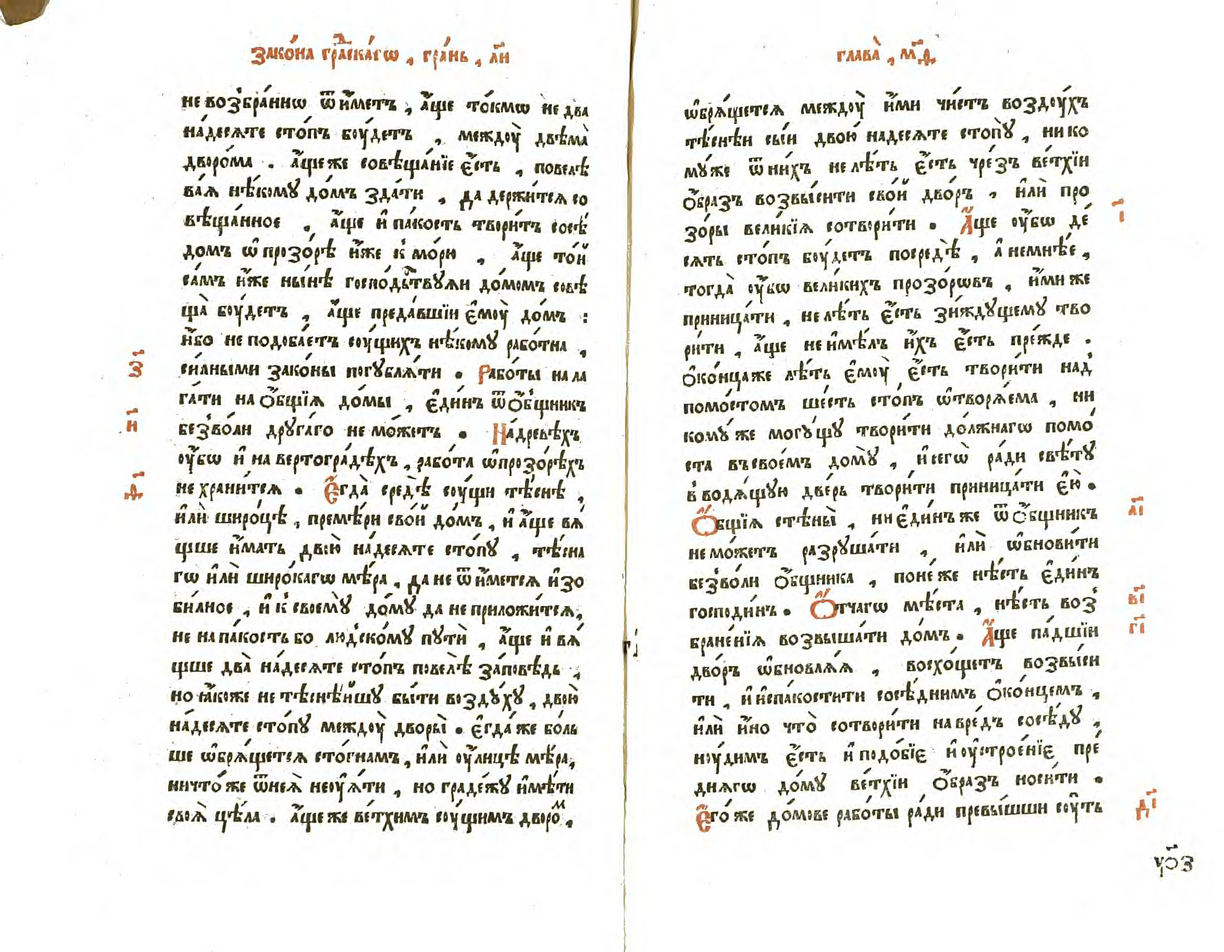 Зако́на гра́дскагѡ , гра́нь , л҃и
не воз̾бра́ннѡ ѿи́метъ , а҆́ще то́кмѡ не два
на́десѧте сто́пъ бꙋ́детъ , междꙋ̀ двѣма̀
дворо́ма . а҆́ще же совѣща́нїе є҆́сть , повелѣ
ва́ѧ нѣ́комꙋ до́мъ зда́ти , да держи́тсѧ со
вѣща́нное , а҆́ще и҆ па́кость твори́тъ сосѣ́
домъ ѡ҆ прозо́рѣ и҆́же к̾ мо́рю , а҆́ще то́й
са́мъ и҆́же ны́нѣ госпо́дьствꙋѧи до́момъ совѣ
ща̀ бꙋ́детъ , а҆́ще преда́вшїи є҆мꙋ̀ до́мъ :
и҆́бо не подоба́етъ сꙋ́щихъ нѣ́комꙋ рабо́тна ,
си́лными зако́ны погꙋблѧ́ти . Рабо́ты на ла
З҃
га́ти на ѻ҆́бщїѧ до́мы , є҆ди́нъ ѿ ѻ҆́бщникъ
без̾ во́ли дрꙋга́го не мо́жетъ . На́древѣхъ
И҃
ᲂу҆́бѡ и҆ на вертогра́дѣхъ , рабо́та ѡ҆ прозо́рѣхъ
не храни́тсѧ . Є҆гда̀ средѣ̀ сꙋ́щи тѣ́снѣ ,
Ѳ҃
и҆лѝ широ́цѣ , премѣ́ри сво́й до́мъ , и҆ а҆́ще вѧ́
щше и҆́мать двою̀ на́десѧте стопꙋ̀ , тѣ́сна
гѡ и҆лѝ широ́кагѡ мѣ́ра , да не ѿи́метсѧ и҆зо
би́лное , и҆ к̾ своемꙋ̀ до́мꙋ да не приложи́тсѧ,
не на па́кость бо лю́дскомꙋ пꙋтѝ , а҆́ще и҆ вѧ́
щше два̀ на́десѧте сто́пъ повелѣ̀ за́повѣдь ,
но ꙗ҆́коже не тѣснѣ́йшꙋ бы́ти воздꙋ́хꙋ , двою̀
на́десѧте стопꙋ̀ междꙋ̀ дворы̀ . є҆гда́ же бо́ль
ше ѡ҆брѧ́щетсѧ сто́гнамъ , и҆лѝ ᲂу҆́лицѣ мѣ́ра,
ничто́же ѿ неѧ̀ неᲂу҆ѧ́ти , но гра́дежꙋ и҆мѣ́ти
своѧ̀ цѣ́ла . а҆́ще же ве́тхимъ сꙋ́щимъ дворо́м ,
глава̀ , м҃ѳ
ѡ҆брѧ́щетсѧ междꙋ̀ и҆́ми чи́стъ воздꙋ́хъ
тѣснѣ́и сы́и двою̀ на́десѧте стопꙋ̀ , ни ко
мꙋ́же ѿ ни́хъ не лѣ́ть є҆́сть чре́зъ ве́тхїи
ѻ҆́бразъ возвы́сити сво́й дво́ръ , и҆лѝ про
зо́ры вели́кїѧ сотвори́ти . А҆́ще ᲂу҆́бѡ де́
І҃
сѧть сто́пъ бꙋ́детъ посредѣ̀ , а҆ не мнѣ́е ,
тогда̀ ᲂу҆́бѡ вели́кихъ прозо́рѡвъ , и҆́ми же
приница́ти , не лѣ́ть є҆́сть зи́ждꙋщемꙋ тво
ри́ти , а҆́ще не и҆мѣ́лъ и҆́хъ є҆́сть пре́жде .
ѻ҆ко́нца же лѣ́ть є҆мꙋ̀ є҆́сть твори́ти над̾
помо́стомъ ше́сть сто́пъ ѿтворѧ́ема , ни
комꙋ́ же могꙋ́щꙋ твори́ти до́лжнагѡ помо́
ста въ свое́мъ домꙋ̀ , и҆ сегѡ̀ ра́ди свѣ́тꙋ
в̾водѧ́щꙋю две́рь твори́ти приница́ти є҆́ю .
Ѻ҆́бщїѧ стѣ́ны , ни є҆ди́нъ же ѿ ѻ҆́бщникъ
А҃І
не мо́жетъ разрꙋша́ти , и҆лѝ ѡ҆бнови́ти
без̾ во́ли ѻ҆́бщника , поне́же нѣ́сть є҆ди́нъ
господи́нъ . Ѻ҆́тчагѡ мѣ́ста , нѣ́сть воз̾
В҃І
бране́нїѧ возвыша́ти до́мъ . А҆́ще па́дшїи
Г҃І
дво́ръ ѡ҆бновлѧ́ѧ , восхо́щетъ возвы́си
ти , и҆ и҆спакости́ти сосѣ́днимъ ѻ҆ко́нцемъ ,
и҆лѝ и҆́но что̀ сотвори́ти на вре́дъ сосѣ́дꙋ ,
нꙋ́димъ є҆́сть и҆ подо́бїе и҆ ᲂу҆строе́нїе пре́
днѧгѡ до́мꙋ ве́тхїи ѻ҆́бразъ носи́ти .
Є҆го́ же до́мове рабо́ты ра́ди превы́шши сꙋ́ть
Д҃І
ѵ҃ѻз